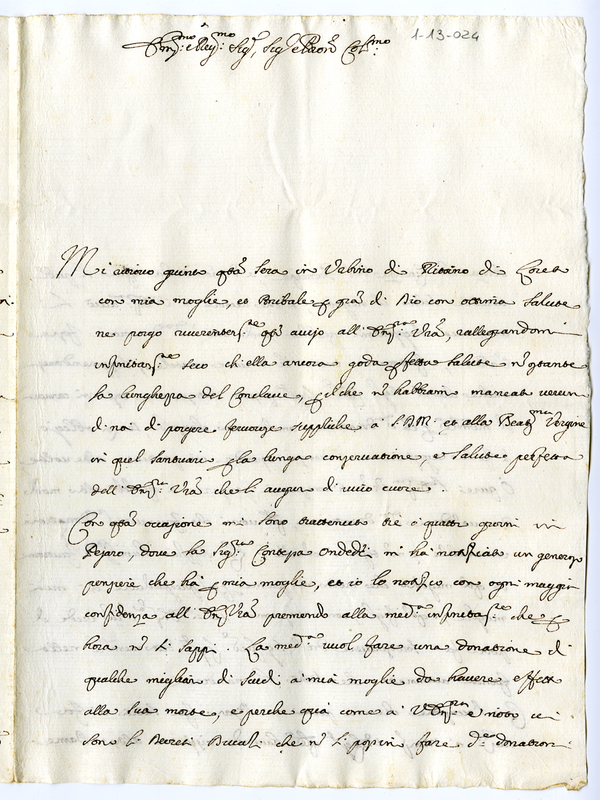 1-13-024
Em.mo e Rev.mo Sig.r, Sig.r e Pron Col.mo
Mi trovo giunto qsta sera in Urbino di Ritorno di Loreto
con mia moglie, et Anibale p gra di Dio con ottima salute
ne porgo riverentem.te qsto aviso all' Em.za Vra, rallegrandomi
infinitam.te seco ch'ella ancora goda pfetta salute n ostante
la lunghezza del Conclave, p il che n habbiam mancato verun
di noi di porgere fervorose suppliche à S.D.M. et alla Beat.ma Vergine
in quel Santuario p la lunga conservatione, e salute perfetta
dell' Em.za Vra che li auguro di vivo cuore.
Con qsta occasione mi sono trattenuto tre ò quattro giorni in
Pesaro, dove la Sig.ra Contessa Ondedei m'ha notificato un generoso
pensiere che ha p mia moglie, et io lo notifico con ogni maggior
confidenza all' Em.za Vra premendo alla med.a infinitam.te che p
hora n si sappi. La med.a vuol fare una donatione di
qualche migliara di scudi à mia moglie da havere effetto
alla sua morte, e perche quà come à V. Em.za è noto vi
sono li Decreti Ducali che n si possin fare d.e donationi